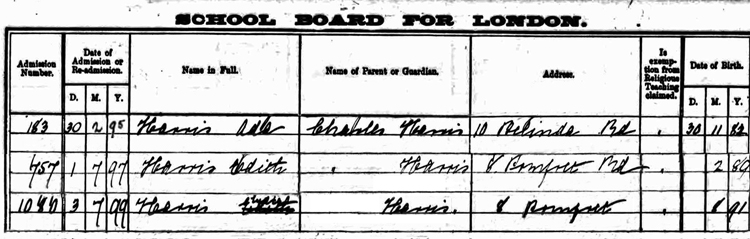 SCHOOL BOARD FOR LONDON.
Admission Number. Date of Admission or Re-admission. D. M. Y. Name in Full. Name of Parent or Guardian. Address. Is exemption from Religious Teaching claimed. Date of Birth. D. M. Y.
163 30 2 95 Harris Ada Charles Harris 10 Belinda Rd 30 11 82
757 1 7 97 Harris Edith " Harris 8 Pomfret Rd 2 89
3 7 99 Harris Harris. 8 Pomfret 8 91